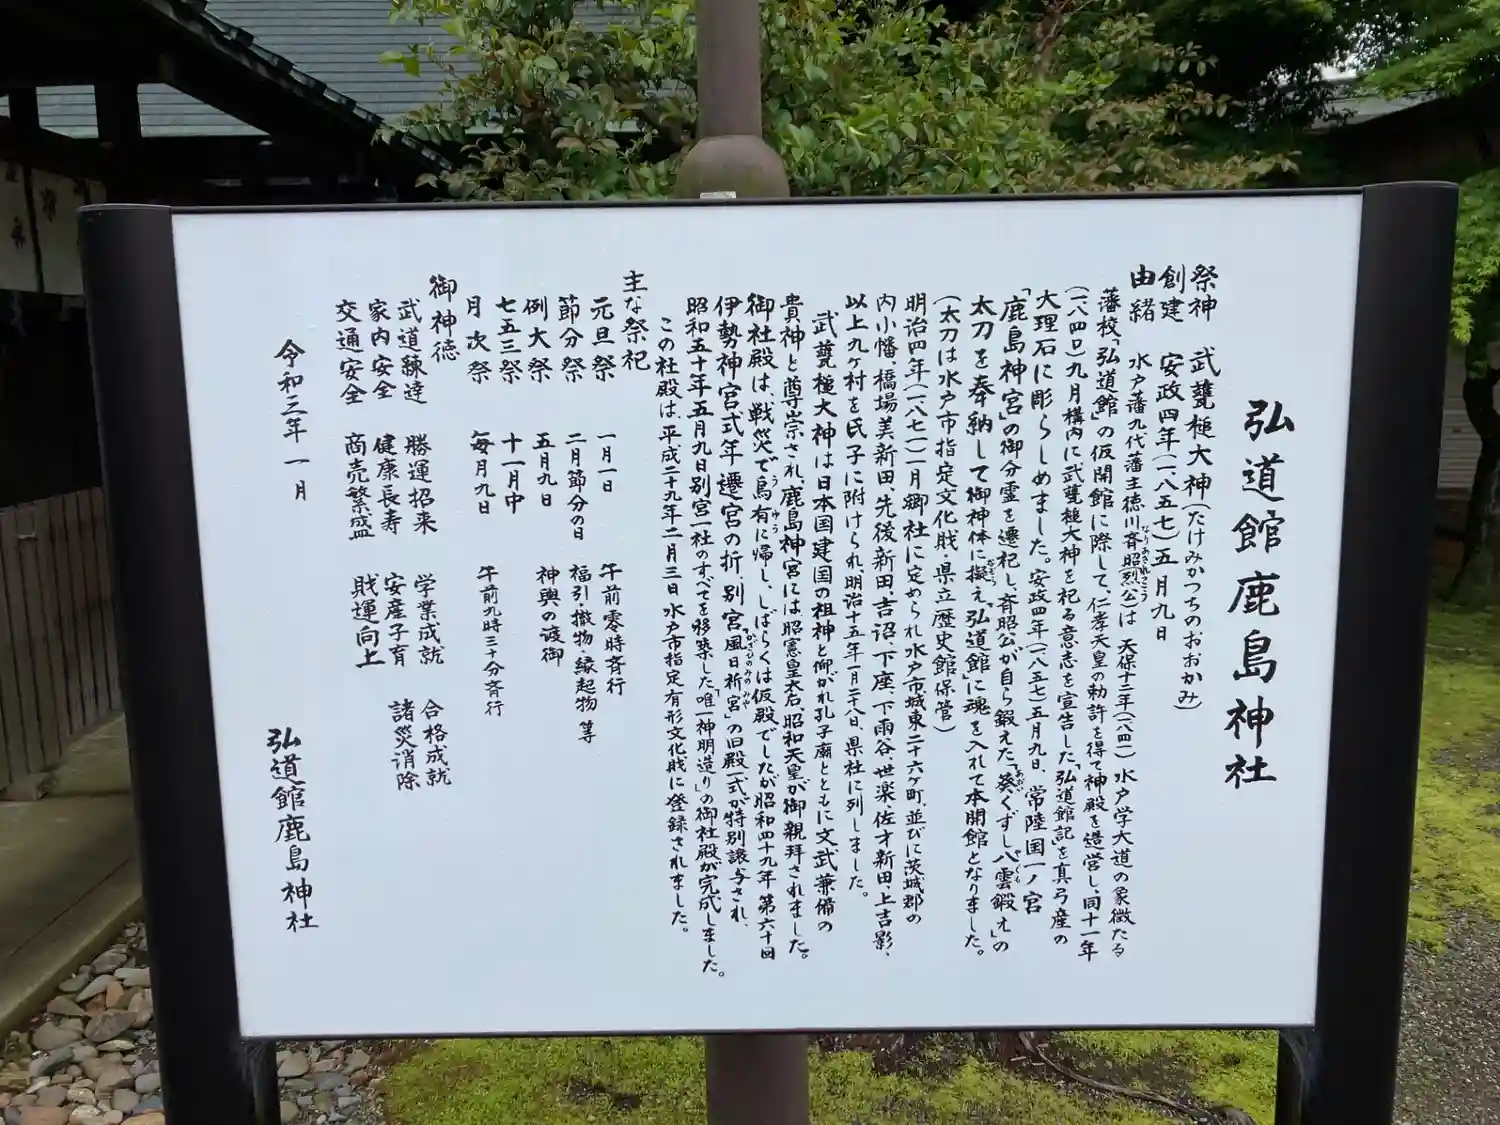 弘道館鹿島神社
祭神　武甕槌大神(たけみかつちのおおかみ)
創建　安政四年(一八五七)五月九日
由緒　水戸藩九代藩主徳川斉昭(烈公)は　天保十二年(一八四一)水戸学大道の象徴たる
藩校「弘道館」の仮開館に際して、仁孝天皇の勅許を得て神殿を造営し、同十一年
(一八四〇)九月構内に武甕槌大神を祀る意志を宣告した「弘道館記」を真弓産の
大理石に彫らしめました。安政四年(一八五七)五月九日、常陸国一ノ宮
「鹿島神宮」の御分霊を遷祀し、斉昭公が自ら鍛えた「葵くずし八雲鍛え」の
太刀を奉納して御神体に擬え「弘道館」に魂を入れて本開館となりました。
(太刀は水戸市指定文化財・県立歴史館保管)
明治四年(一八七一)一月郷社に定められ水戸市城東二十六ケ町、並びに茨城郡の
内小幡、橋場美新田、先後新田、吉沼、下座、下雨谷、世楽、佐才新田、上吉影、
以上九ケ村を氏子に附けられ、明治十五年一月二十八日、県社に列しました。
武甕槌大神は日本国建国の祖神と仰がれ孔子廟とともに文武兼備の
貴神と尊崇され、鹿島神宮には昭憲皇太后、昭和天皇が御親拝されました。
御社殿は、戦災で烏有に帰し、しばらくは仮殿でしたが昭和四十九年第六十回
伊勢神宮式年遷宮の折、別宮「風日祈宮」の旧殿一式が特別譲与され、
昭和五十年五月九日別宮一社のすべてを移築した「唯一神明造り」の御社殿が完成しました。
この社殿は、平成二十九年二月三日水戸市指定有形文化財に登録されました。
主な祭祀
元旦祭　一月一日　午前零時斉行
節分祭　二月節分の日　福引・撒物・縁起物等
例大祭　五月九日　神輿の渡御
七五三祭　十一月中
月次祭　毎月九日　午前九時三十分斉行
御神徳
武道錬達　勝運招来　学業成就　合格成就
家内安全　健康長寿　安産子育　諸災消除
交通安全　商売繁盛　財運向上
令和三年一月
弘道館鹿島神社